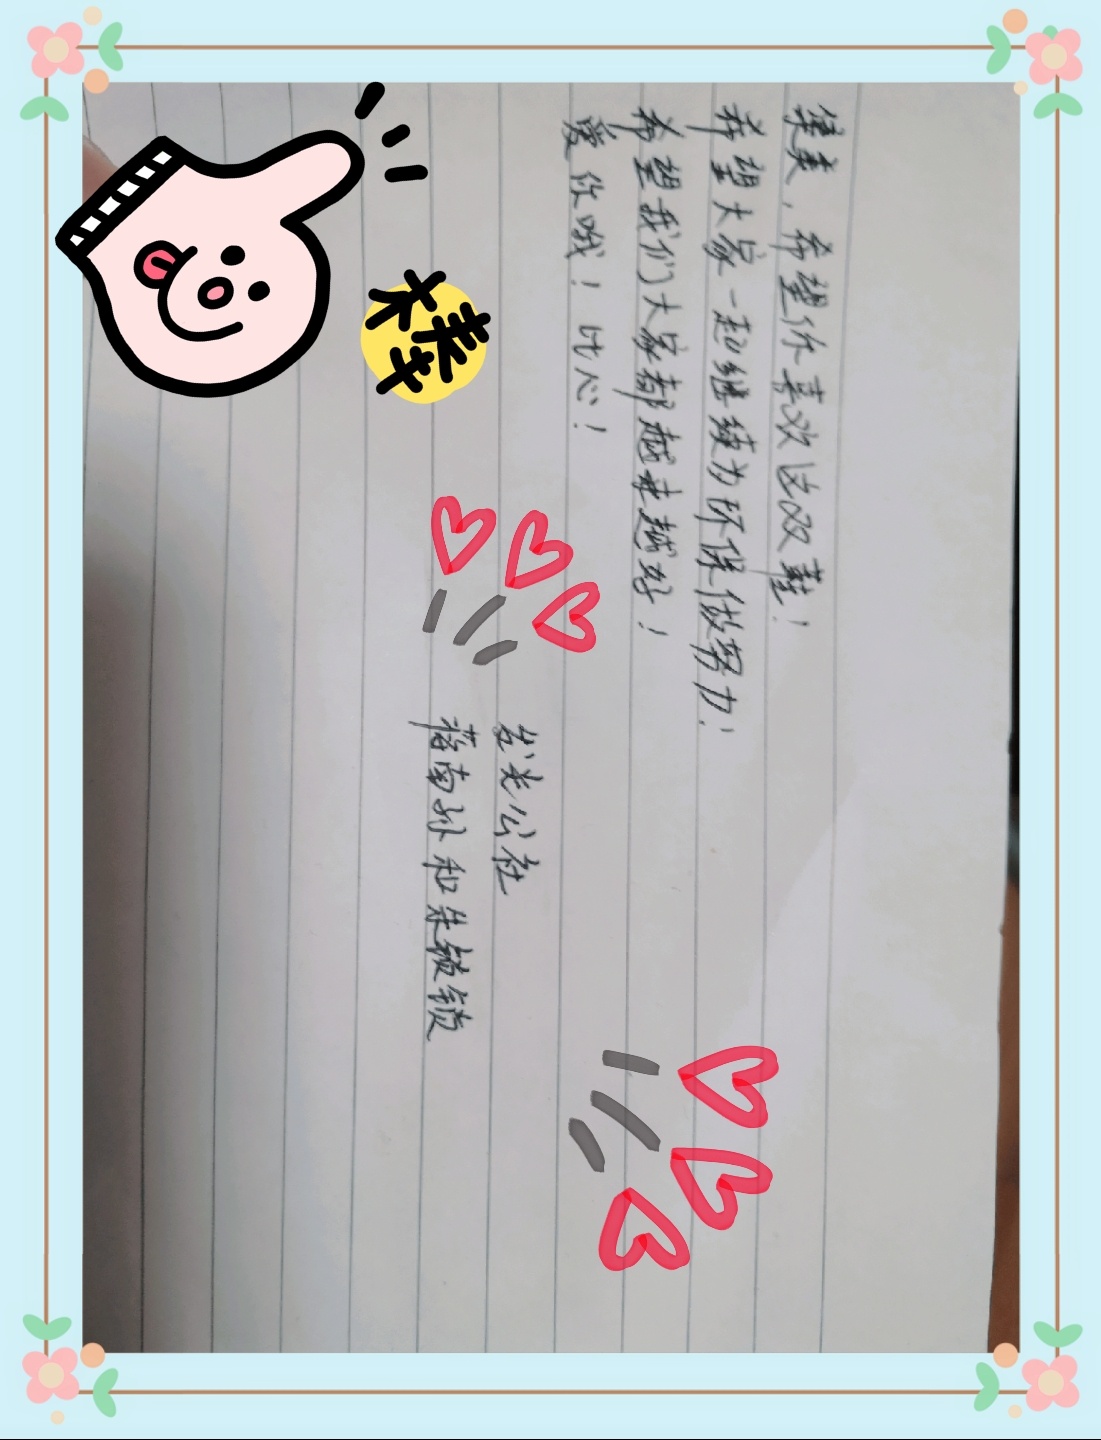 集美，希望你喜欢这双鞋！
希望大家一起继续为环保做努力！
希望我们大家都越来越好！
爱你哦！比心！
发光公社
蒋南孙和朱锁锁
太棒